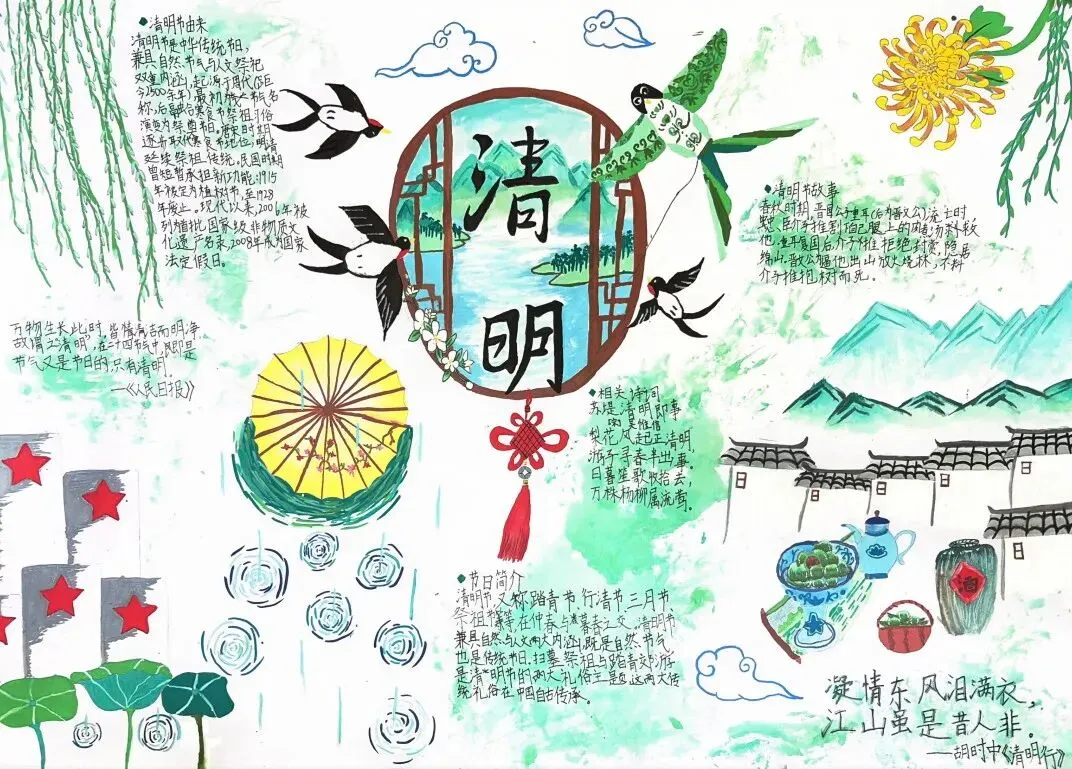 清明节由来
清明节是中华传统节日,
兼具自然节气与人文祭祀
双重内涵,起源于周代(距
今2500余年),最初为节气名
称,后融合寒食节祭祖习俗
演变为祭奠节日。唐宋时期
逐步取代寒食节地位,明清
延续祭祖传统,民国时期
曾短暂承担新功能:1915
年被定为植树节,至1928
年废止。现代以来,2006年被
列为首批国家级非物质文
化遗产名录,2008年成为国家
法定假日。
万物生长此时,皆清洁而明净,
故谓之清明”,在二十四节气中,既是
节气又是节日的,只有清明。
—《人民日报》
清
明
清明节故事
春秋时期,晋国公子重耳(后为晋文公)流亡时
他,重耳复国后,介子推拒绝封赏,隐居
绵山。晋文公逼他出山放火烧林,不料
介子推抱树而死。
相关诗词
苏堤清明即事
吴惟信
梨花风起正清明,
游子寻春半出事。
日暮笙歌收拾去,
万株杨柳属流莺。
节日简介
清明节,又称踏青节、行清节、三月节、
祭祖节等,在仲春与暮春之交。清明节
兼具自然与人文两大内涵,既是自然节气
也是传统节日。扫墓祭祖与踏青郊游
是清明节的两大礼俗主题,这两大传
统礼俗在中国自古传承。
酒
凝情东风泪满衣,
江山虽是昔人非。
——胡时中《清明行》